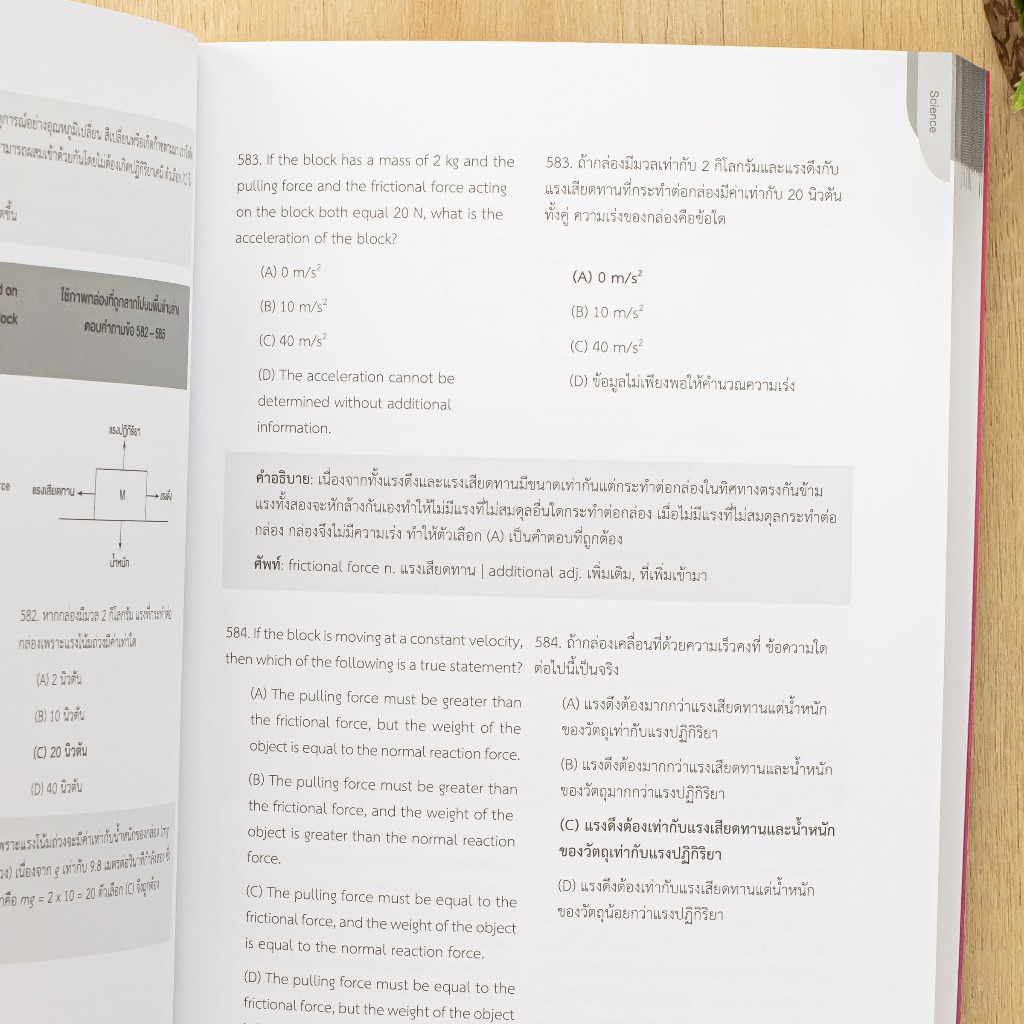 สีเปลี่ยนหรือเกิดก๊าซตามมา
ดขึ้น
d on
lock
ใช้ภาพกล่องที่ถูกลากไปบนพื้นด้านล่าง
ตอบคำถามข้อ 582 – 585
แรงปฏิกิริยา
rce
แรงเสียดทาน
M
แรงดึง
น้ำหนัก
582. หากกล่องมีมวล 2 กิโลกรัม แรงที่กระทำต่อ
กล่องเพราะแรงโน้มถ่วงมีค่าเท่าใด
(A) 2 นิวตัน
(B) 10 นิวตัน
(C) 20 นิวตัน
(D) 40 นิวตัน
เพราะแรงโน้มถ่วงจะมีค่าเท่ากับน้ำหนักของกล่อง (mg
วง) เนื่องจาก g เท่ากับ 9.8 เมตรต่อวินาทีกำลังสอง
กคือ mg = 2 x 10 = 20 ตัวเลือก (C) จึงถูกต้อง
Science
583. If the block has a mass of 2 kg and the
pulling force and the frictional force acting
on the block both equal 20 N, what is the
acceleration of the block?
(A) 0 m/s²
(B) 10 m/s²
(C) 40 m/s²
(D) The acceleration cannot be
determined without additional
information.
583. ถ้ากล่องมีมวลเท่ากับ 2 กิโลกรัมและแรงดึงกับ
แรงเสียดทานที่กระทำต่อกล่องมีค่าเท่ากับ 20 นิวตัน
ทั้งคู่ ความเร่งของกล่องคือข้อใด
(A) 0 m/s²
(B) 10 m/s²
(C) 40 m/s²
(D) ข้อมูลไม่เพียงพอให้คำนวณความเร่ง
คำอธิบาย: เนื่องจากทั้งแรงดึงและแรงเสียดทานมีขนาดเท่ากันแต่กระทำต่อกล่องในทิศทางตรงกันข้าม
แรงทั้งสองจะหักล้างกันเองทำให้ไม่มีแรงที่ไม่สมดุลอื่นใดกระทำต่อกล่อง เมื่อไม่มีแรงที่ไม่สมดุลกระทำต่อ
กล่อง กล่องจึงไม่มีความเร่ง ทำให้ตัวเลือก (A) เป็นคำตอบที่ถูกต้อง
ศัพท์: frictional force n. แรงเสียดทาน | additional adj. เพิ่มเติม, ที่เพิ่มเข้ามา
584. If the block is moving at a constant velocity,
then which of the following is a true statement?
(A) The pulling force must be greater than
the frictional force, but the weight of the
object is equal to the normal reaction force.
(B) The pulling force must be greater than
the frictional force, and the weight of the
object is greater than the normal reaction
force.
(C) The pulling force must be equal to the
frictional force, and the weight of the object
is equal to the normal reaction force.
(D) The pulling force must be equal to the
frictional force, but the weight of the object
584. ถ้ากล่องเคลื่อนที่ด้วยความเร็วคงที่ ข้อความใด
ต่อไปนี้เป็นจริง
(A) แรงดึงต้องมากกว่าแรงเสียดทานแต่น้ำหนัก
ของวัตถุเท่ากับแรงปฏิกิริยา
(B) แรงดึงต้องมากกว่าแรงเสียดทานและน้ำหนัก
ของวัตถุมากกว่าแรงปฏิกิริยา
(C) แรงดึงต้องเท่ากับแรงเสียดทานและน้ำหนัก
ของวัตถุเท่ากับแรงปฏิกิริยา
(D) แรงดึงต้องเท่ากับแรงเสียดทานแต่น้ำหนัก
ของวัตถุน้อยกว่าแรงปฏิกิริยา